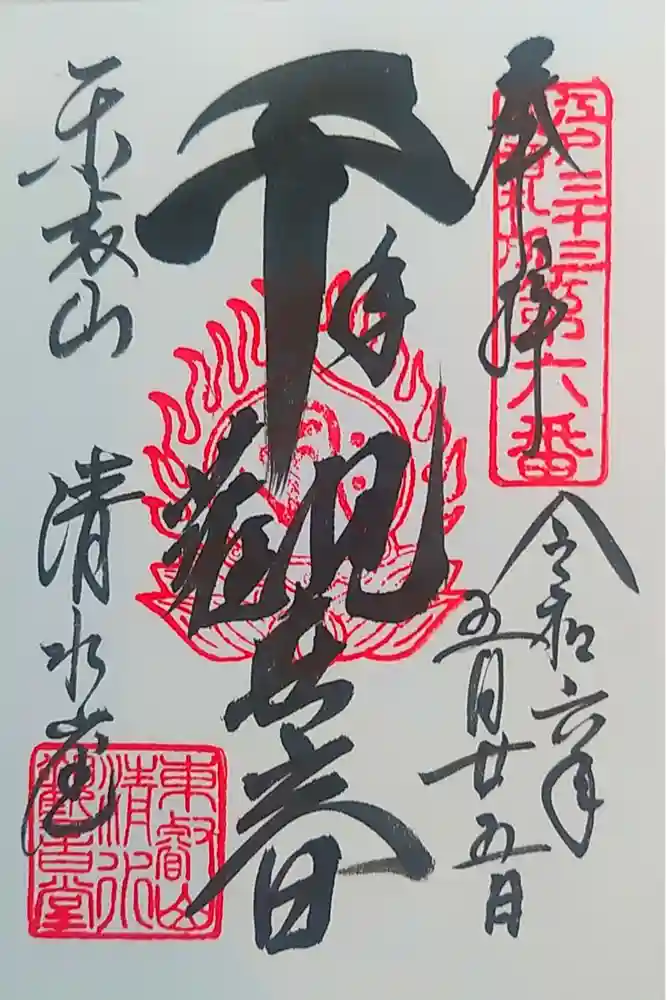 奉拝
江戸三十三
観音札所第六番
令和六年
五月廿五日
千手観世音
東叡山
清水堂
東叡山
清水
観音堂